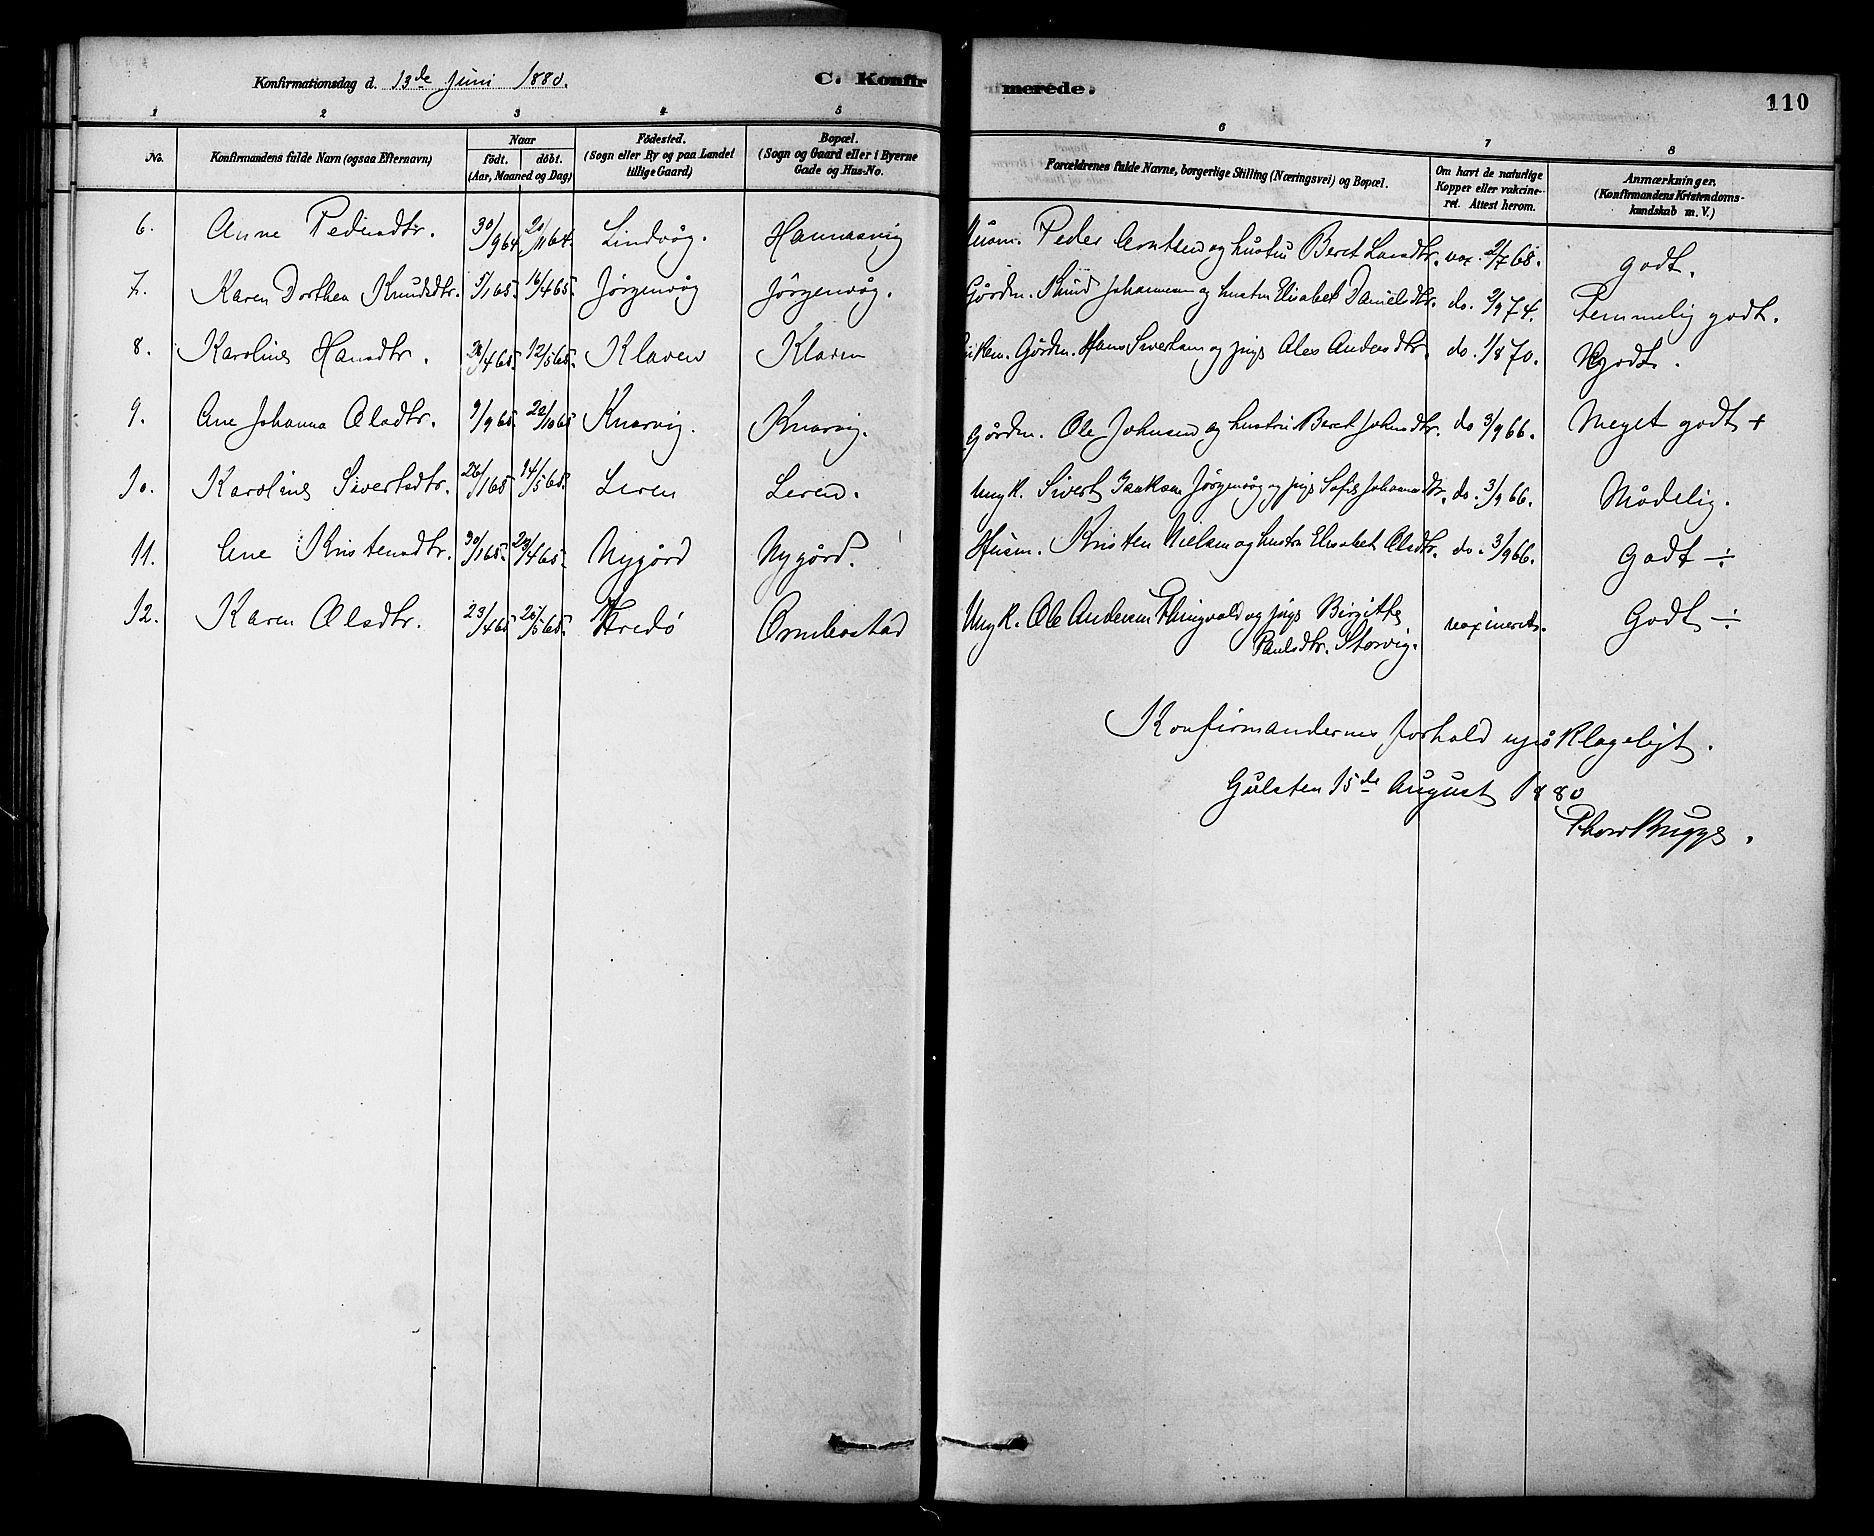 Konfirmationsdag d. 13de Juni 1880.
C. Konfirmerede.
110
1 2 3 4 5 6 7 8
No. Konfirmandens fulde Navn (ogsaa Efternavn) Naar födt. döbt. (Aar, Maaned og Dag) Födested. (Sogn eller By og paa Landet tillige Gaard) Bopæl. (Sogn og Gaard eller i Byerne Gade og Hus-No. Forældrenes fulde Navne, borgerlige Stilling (Næringsvei) og Bopæl. Om havt de naturlige Kopper eller vakcineret. Attest herom. Anmærkninger. (Konfirmandens Kristendomskundskab m. V.)
6. Anne Pedersdtr. 30/9 64 /11 64. Lindvåg. Hannasvig Husm. Peder Arntsen og hustru Beret Larsdtr. vax. 2/7 68. godt.
7. Karen Dorthea Knudsdtr. 5/1 65. 16/4 65. Jørgenvåg Jørgenvåg. Gårdm. Knud Johannesen og hustru Elisabet Danielsdtr. do. 2/9 74. temmelig godt.
8. Karoline Hansdtr. /4 65. 12/5 65. Klaven Klaven Gårdm. Hans Sivertsen og pige Andersdtr. do. 1/8 70. godt.
9. Ane Johanna Olsdtr. 9/9 65. 22/10 65 Knarvig. Knarvig. Gårdm. Ole Johnsen og hustru Beret Johnsdtr. do 3/9 66. Meget godt +
10. Karoline Sivertsdtr. 26/1 65 14/5 65. Leren Leren. Ungk. Sivert Isaksen Jørgenvåg og pige Sofie Johannesdtr. do. 3/9 66. Mådelig.
11. Ane Kristensdtr. 30/1 65. /4 65. Nygård Nygård. Husm. Kristen Nielsen og hustru Elisabet Olsdtr. do. 3/9 66. Godt ÷
12. Karen Olsdtr. 23/4 65 25/5 65. Fredø Ormbostad Ungk. Ole Andersen Thingvold og pige Birgitte Paulsdtr. Storvig. vaxineret. Godt ÷
Konfirmandernes forhold upåklageligt.
Gulsten 15de August 1880
Bugge.